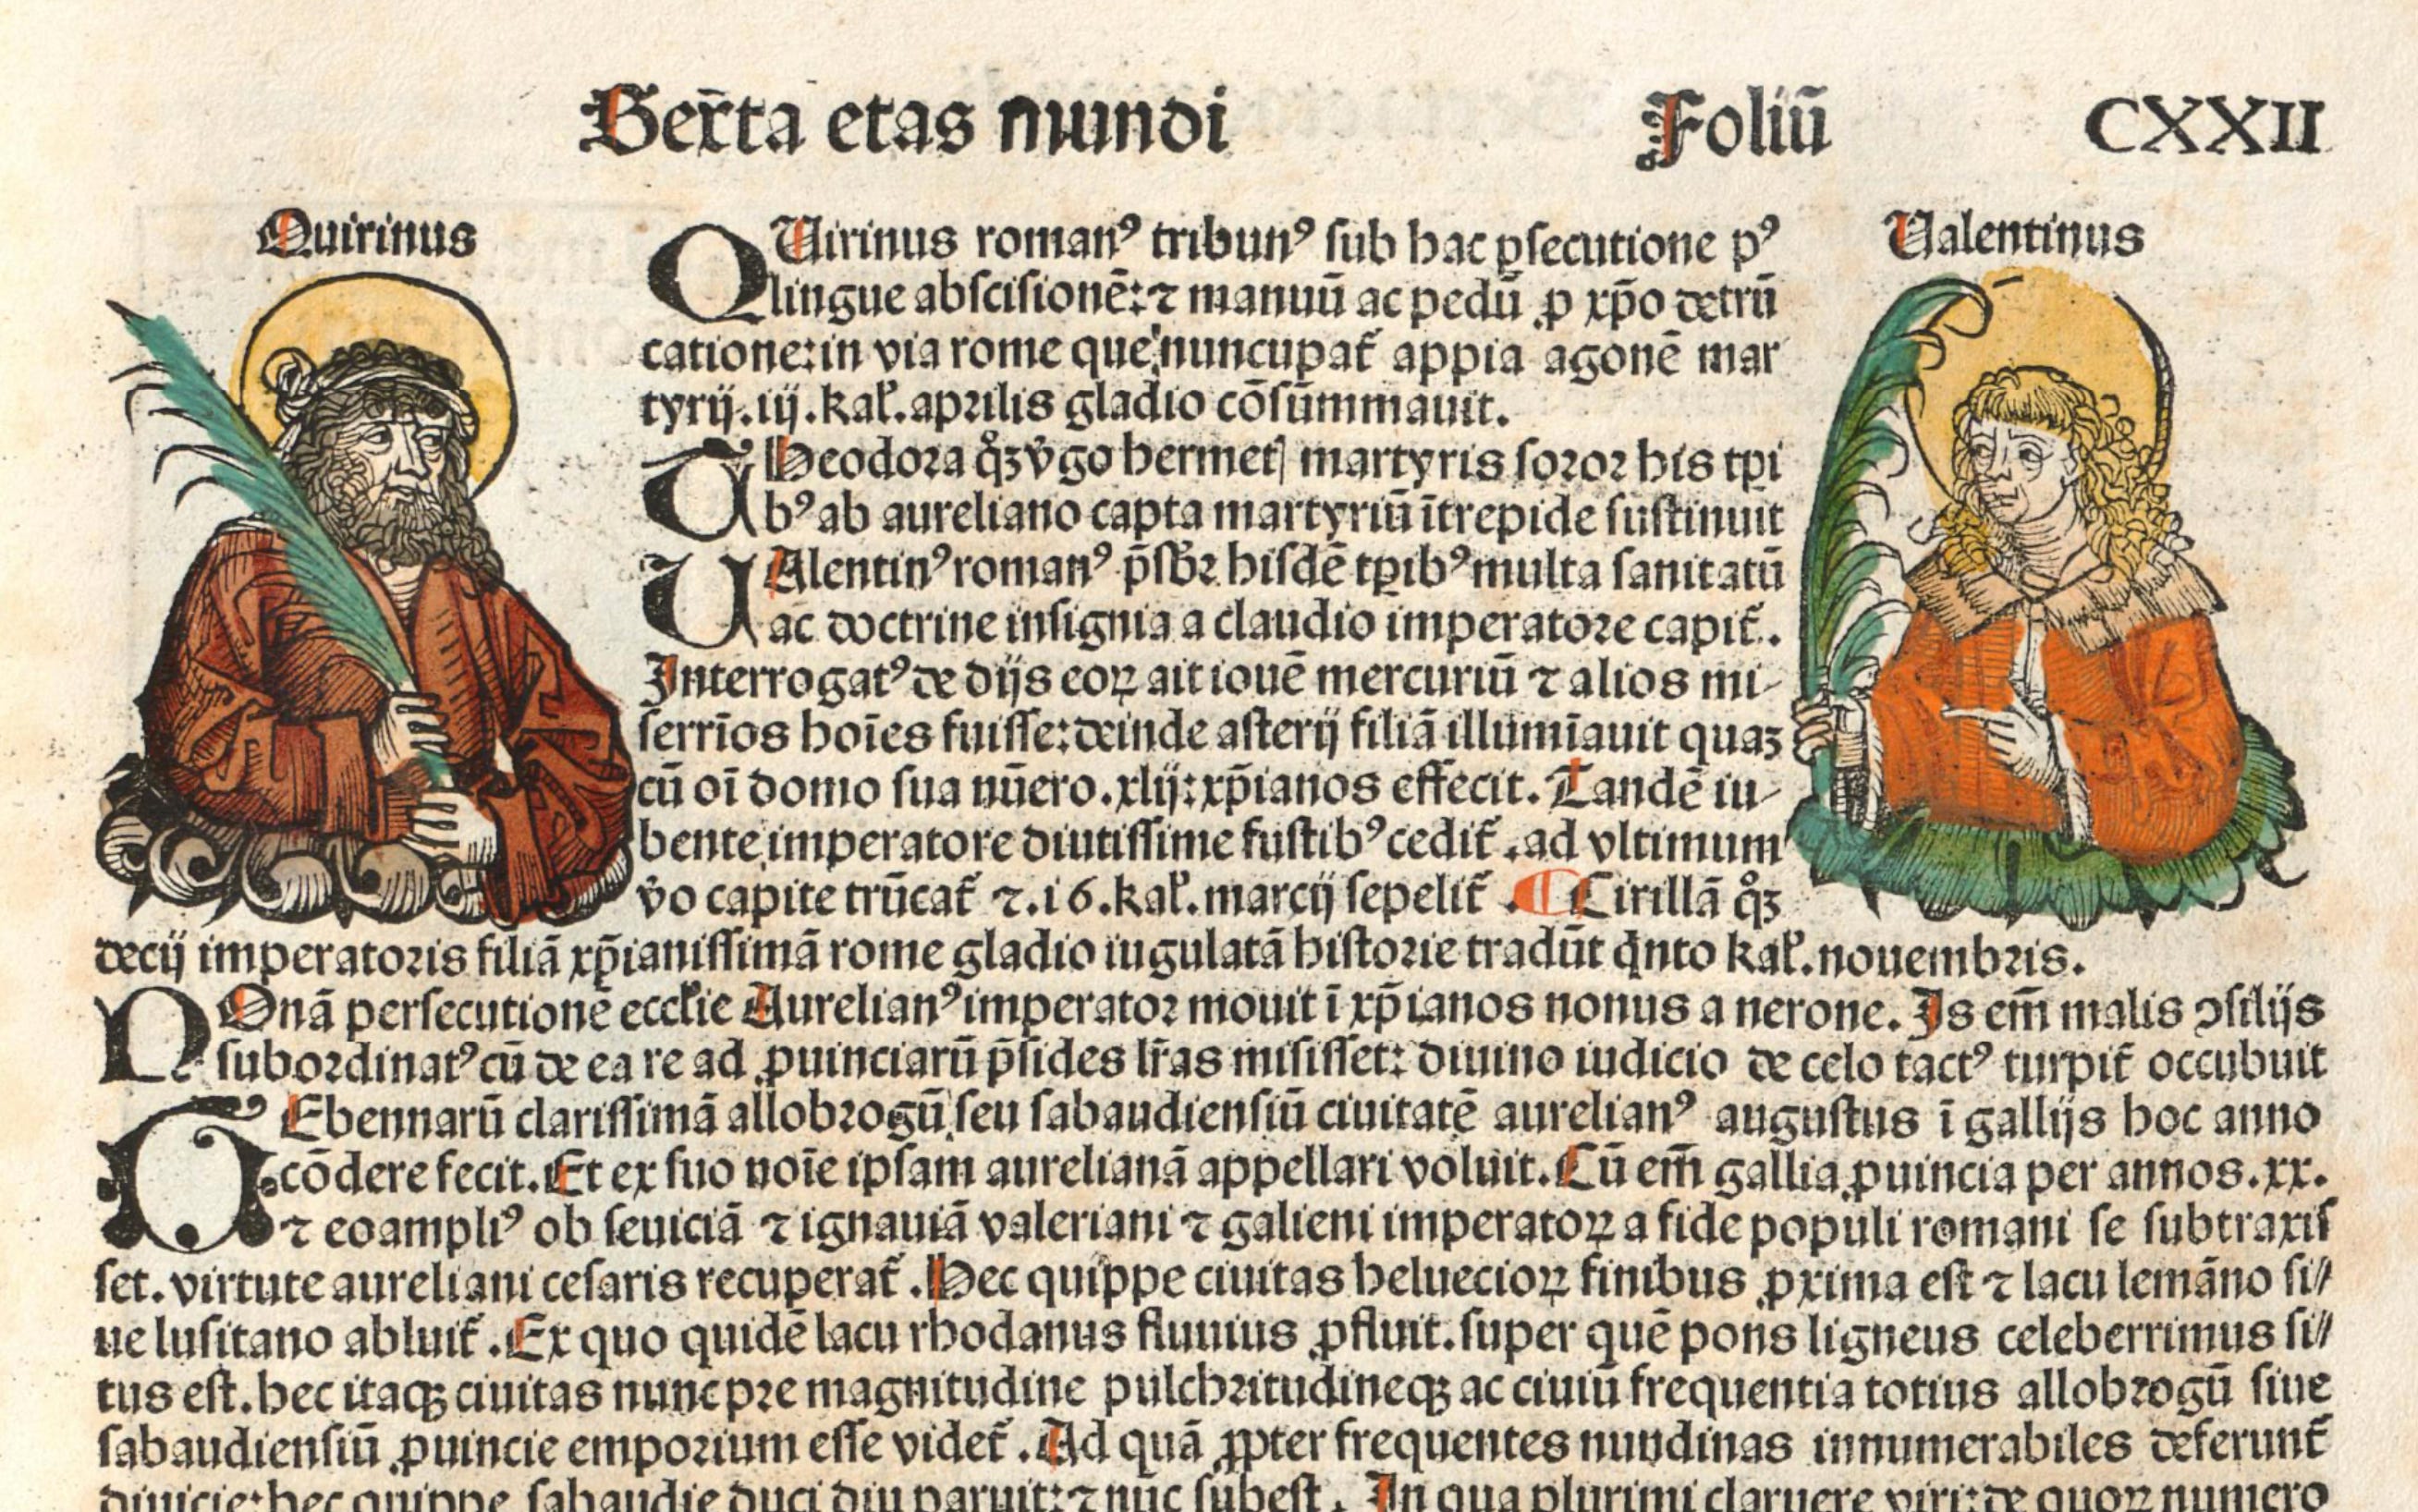 Sexta etas mundi Foliū CXXII
Quirinus
Valentinus
QVirinus romanꝰ tribunꝰ sub hac ꝑsecutione pꝰ
lingue abscisionē: ⁊ manuū ac pedū ꝓ xp̄o detrū
catione: in via rome que nuncupat̄ appia agonē mar
tyrij. iij. kal̄. aprilis gladio cōsūmmauit.
THeodora qͦꝫ v̄go hermetꝭ martyris soror his tp̄i
bꝰ ab aureliano capta martyriū ītrepide sustinuit
VAlentinꝰ romanꝰ p̄sb̄r hisdē tꝑibꝰ multa sanitatū
ac doctrine insignia a claudio imperatore capit̄..
Interrogatꝰ de dijs eoꝝ ait iouē mercuriū ⁊ alios mi-
serrīos hoīes fuisse: deinde asterij filiā illumīauit quaꝫ
cū oī domo sua nūero. xlij: xp̄ianos effecit. Tandē iu-
bente imperatore diutissime fustibꝰ cedit̄. ad vltimum
v̄o capite trūcat̄ ⁊. 16. kal̄. marcij sepelit̄. ¶ Cirillā qͦꝫ
decij imperatoris filiā xp̄ianissimā rome gladio iugulatā historie tradūt qͥnto kal̄. nouembris.
NOnā persecutionē eccl̄ie Aurelianꝰ imperator mouit ī xp̄ianos nonus a nerone. Is em̄ malis ꝯsilijs
subordinatꝰ cū de ea re ad ꝓuinciarū p̄sides lr̄as misisset: diuino iudicio de celo tactꝰ turpit̄ occubuit
GEbennarū clarissimā allobrogū seu sabaudiensiū ciuitatē aurelianꝰ augustus ī gallijs hoc anno
cōdere fecit. Et ex suo noīe ipsam aurelianā appellari voluit. Cū em̄ gallia ꝓuincia per annos. xx.
⁊ eoampliꝰ ob seuiciā ⁊ ignauiā valeriani ⁊ galieni imperatoꝝ a fide populi romani se subtraxis
set. virtute aureliani cesaris recuperat̄. Hec quippe ciuitas heluecioꝝ finibus ꝓxima est ⁊ lacu lemāno si//
ue lusitano abluit̄. Ex quo quidē lacu rhodanus fluuius ꝓfluit. super quē pons ligneus celeberrimus si//
tus est. hec itaqꝫ ciuitas nunc pre magnitudine pulchritudineqꝫ ac ciuiū frequentia totius allobrogū siue
sabaudiensiū ꝓuincie emporium esse videt̄. Ad quā ꝓpter frequentes nundinas innumerabiles deferunt̄
diuicie: hec quippe sabaudie duci diu paruit: ⁊ nūc subest. In qua plurimi claruere viri: de quoꝝ numero